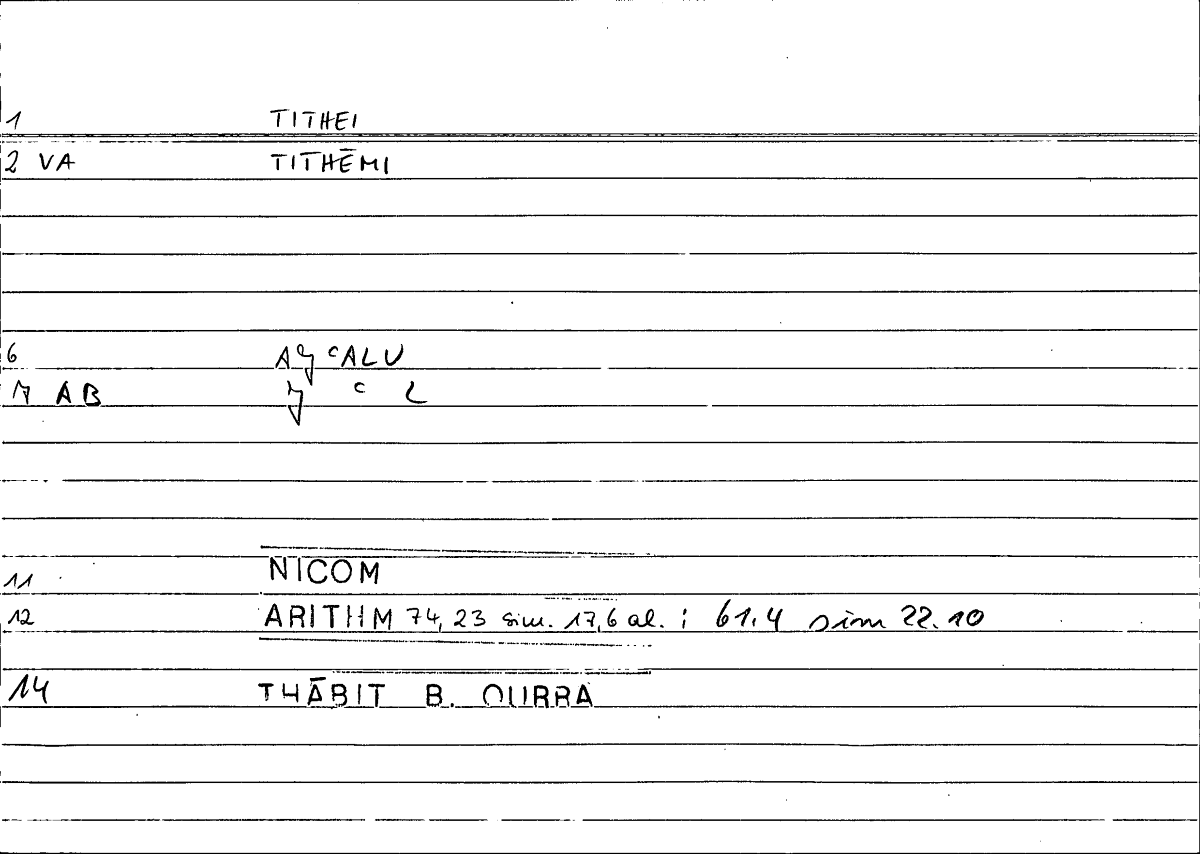 1 TITHEI
2 VA TITHĒMI
6 AǦ ᶜALU
7 AB Ǧ ᶜ L
11 NICOM
12 ARITHM 74, 23 sim. 17,6 al. ; 61.4 sim 22.10
14 THĀBIT B. QURRA